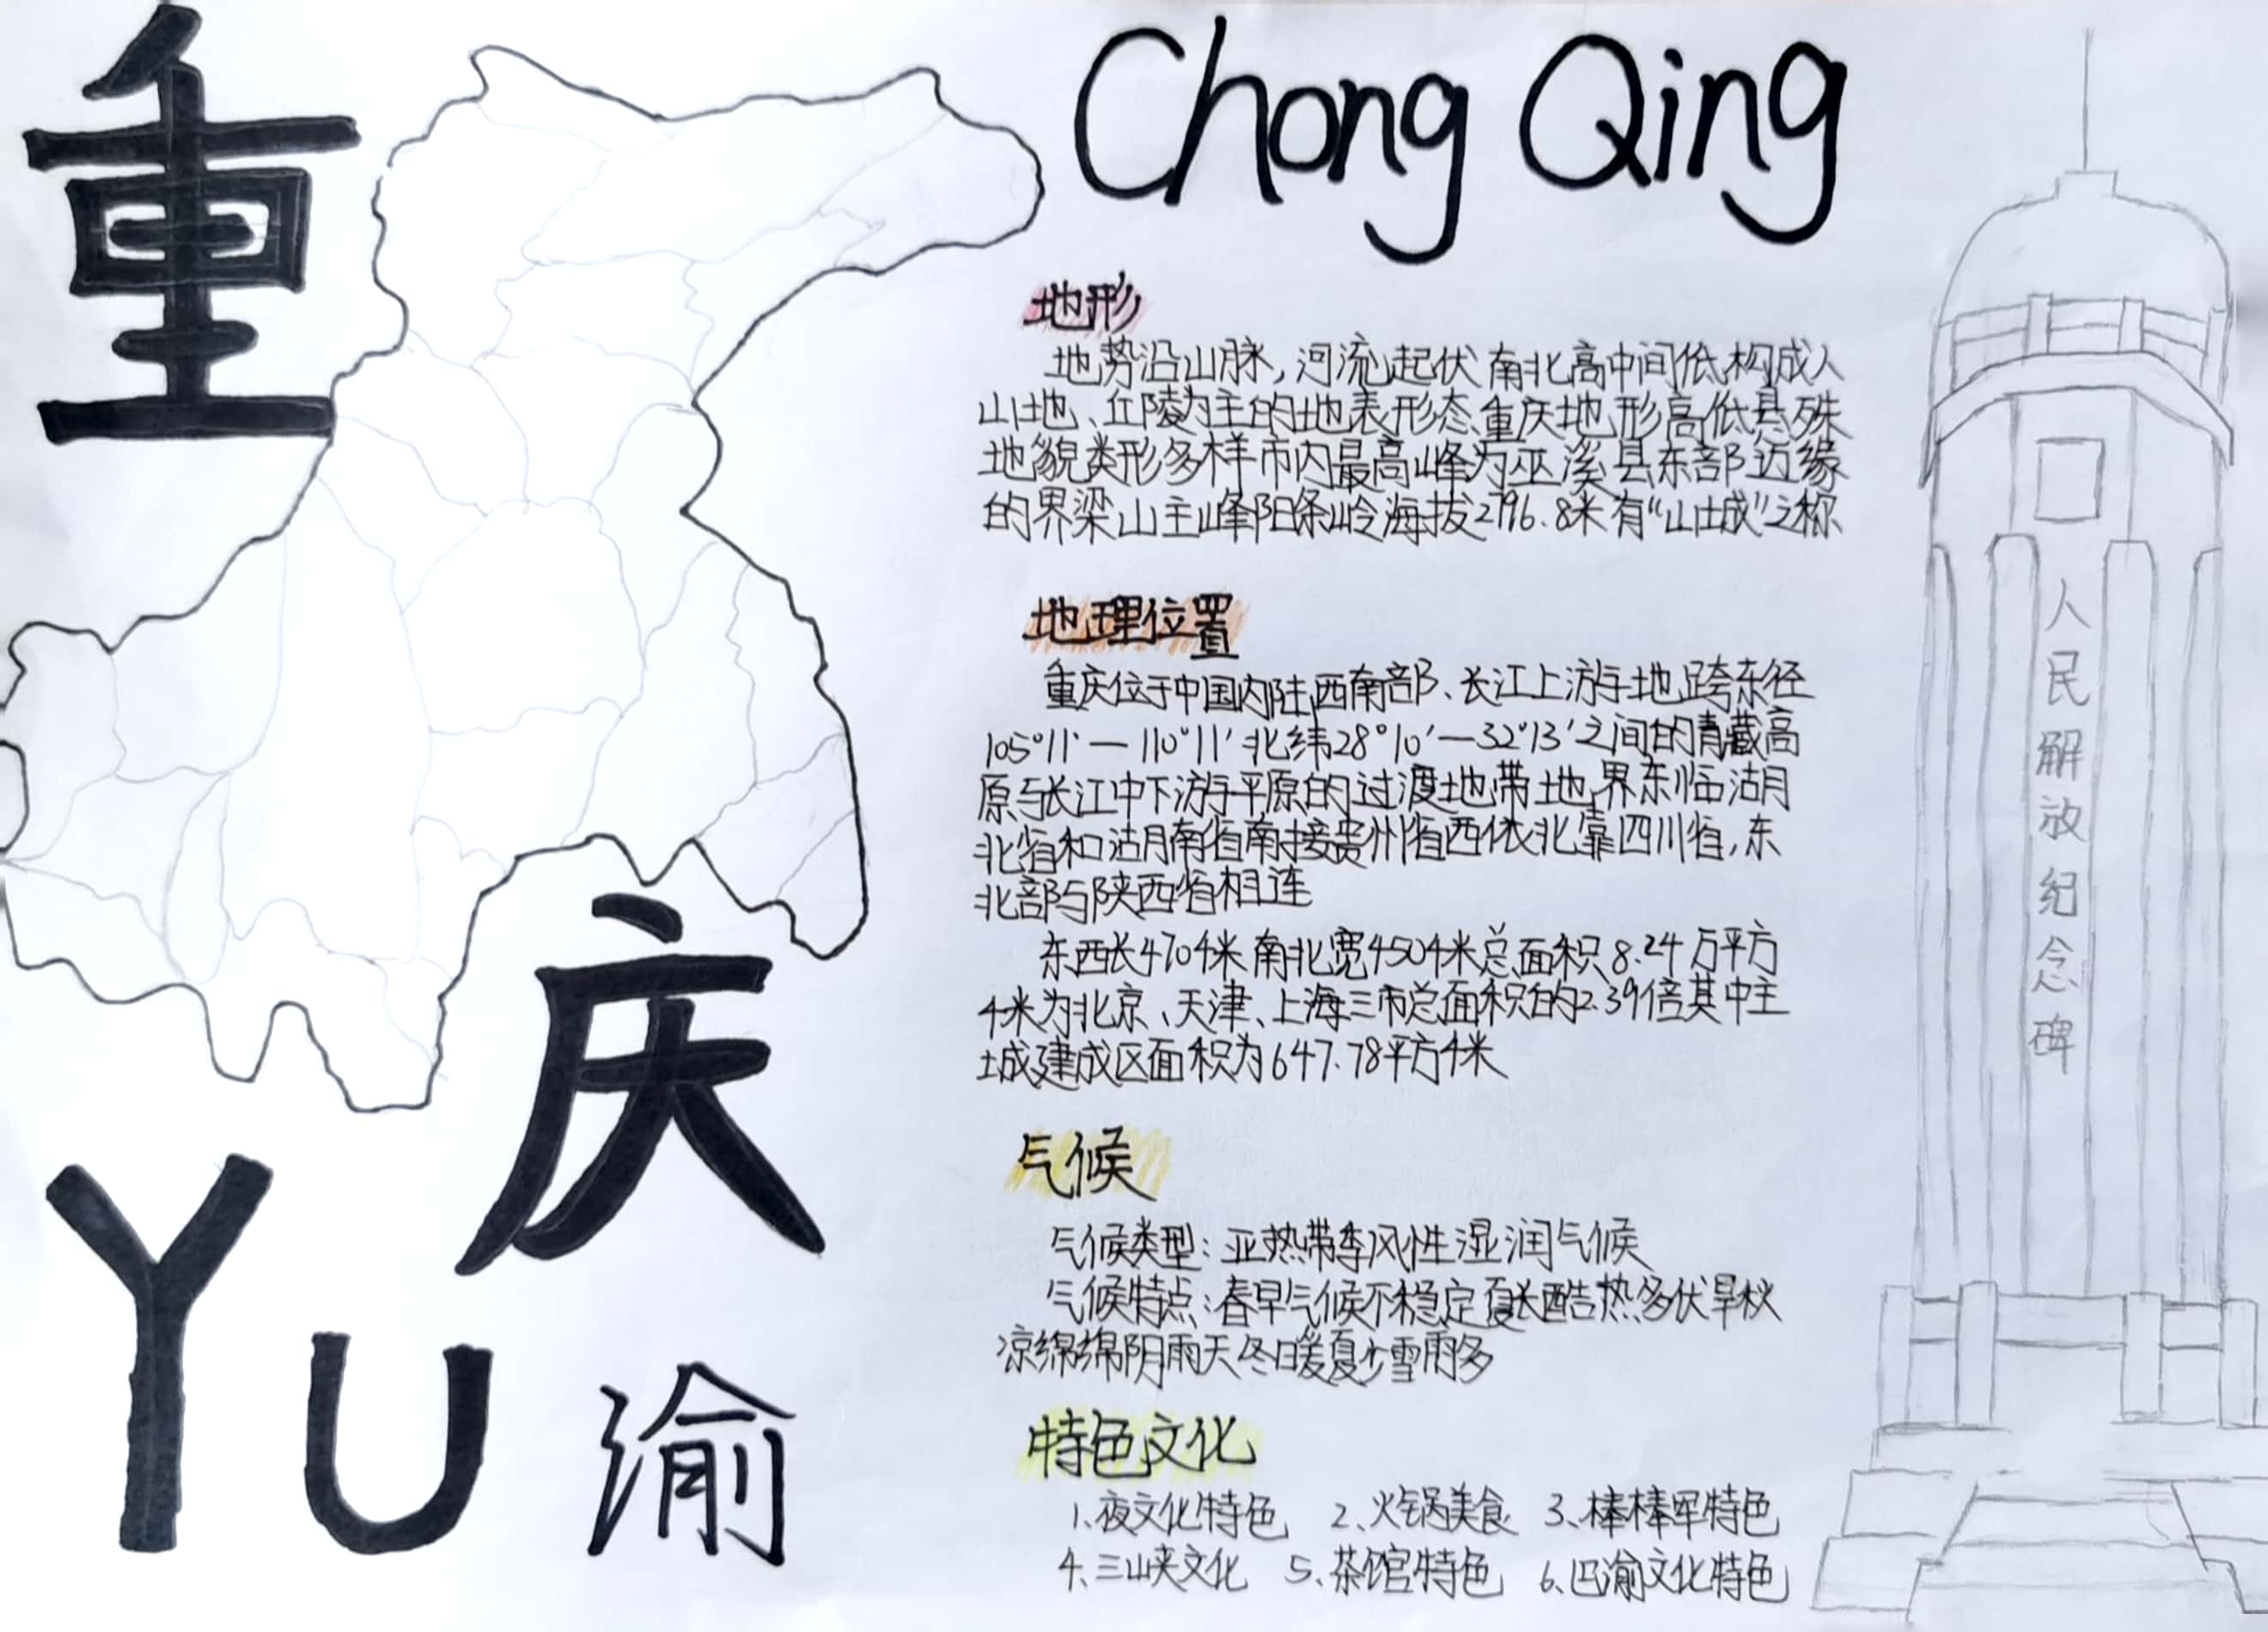 重
庆
YU
渝
Chong Qing
地形
地势沿山脉，河流起伏南北高中间低构成人
山地、丘陵为主的地表形态重庆地形高低县殊
地貌类形多样市内最高峰为巫溪县东部边缘
的界梁山主峰阳条岭海拔2796.8米有“山城”之称
地理位置
重庆位于中国内陆西南部、长江上游地跨东径
105°11′—110°11′北纬28°10′—32°13′之间的青藏高
原与长江中下游平原的过渡地带地界东临湖
北省和湖南省南接贵州省西依北靠四川省，东
北部与陕西省相连
东西长470千米南北宽450千米总面积8.24万平方
千米为北京、天津、上海三市总面积的2.39倍其中主
城建成区面积为647.78平方千米
气候
气候类型：亚热带季风性湿润气候
气候特点：春早气候不稳定夏长酷热多伏旱秋
凉绵绵阴雨天冬暖夏少雪雨多
特色文化
1.夜文化特色 2.火锅美食 3.棒棒军特色
4.三峡文化 5.茶馆特色 6.巴渝文化特色
人民解放纪念碑